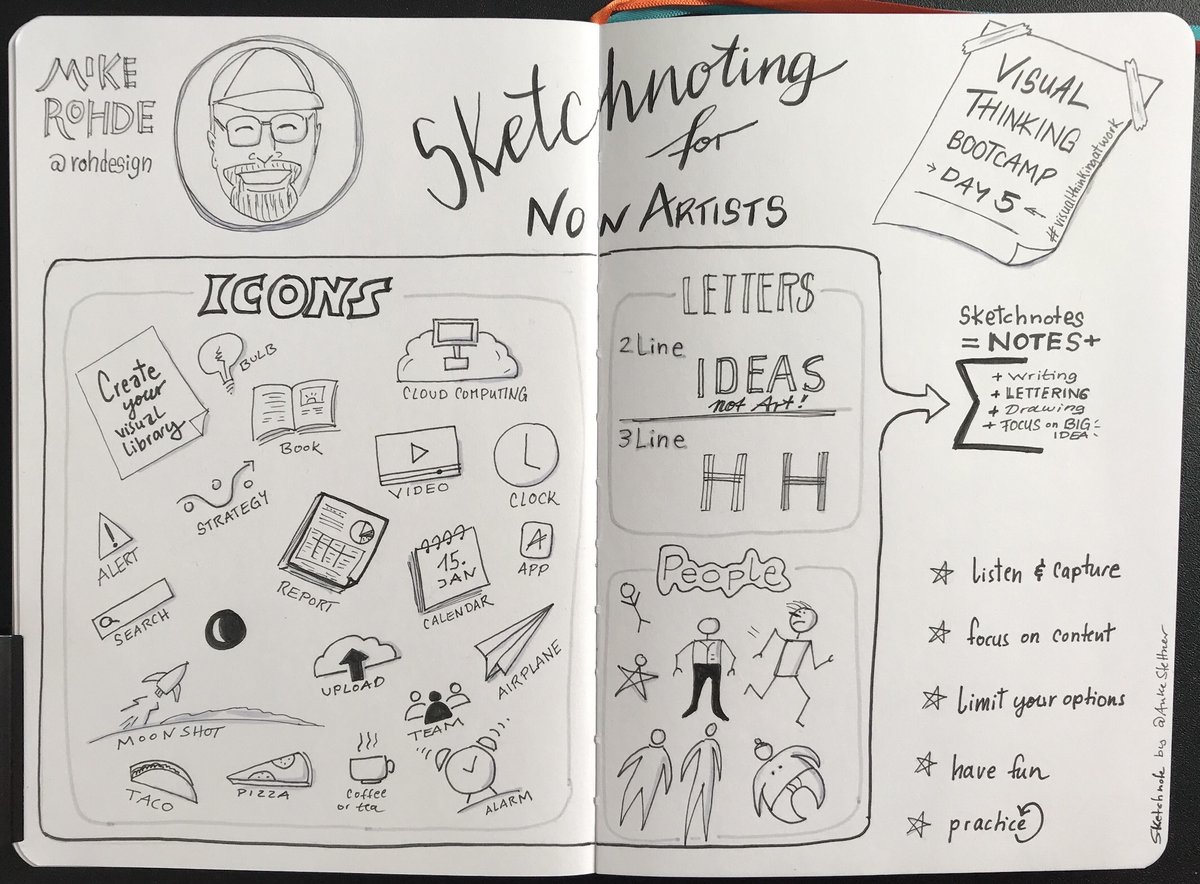 MIKE
ROHDE
@rohdesign
Sketchnoting
for
NON ARTISTS
VISUAL
THINKING
BOOTCAMP
→ DAY 5 ←
#visualthinkingatwork
ICONS
Create
your
visual
library
BULB
BOOK
CLOUD COMPUTING
STRATEGY
VIDEO
CLOCK
ALERT
REPORT
15.
JAN
CALENDAR
A
APP
SEARCH
UPLOAD
AIRPLANE
MOONSHOT
TEAM
TACO
PIZZA
Coffee
or tea
ALARM
LETTERS
2 Line
IDEAS
not Art!
3 Line
H H
People
Sketchnotes
= NOTES+
+ Writing
+ LETTERING
+ Drawing
+ FOCUS on BIG
IDEA
☆ listen & capture
☆ focus on content
☆ limit your options
☆ have fun
☆ practice
Sketchnote by @AnkeStettner